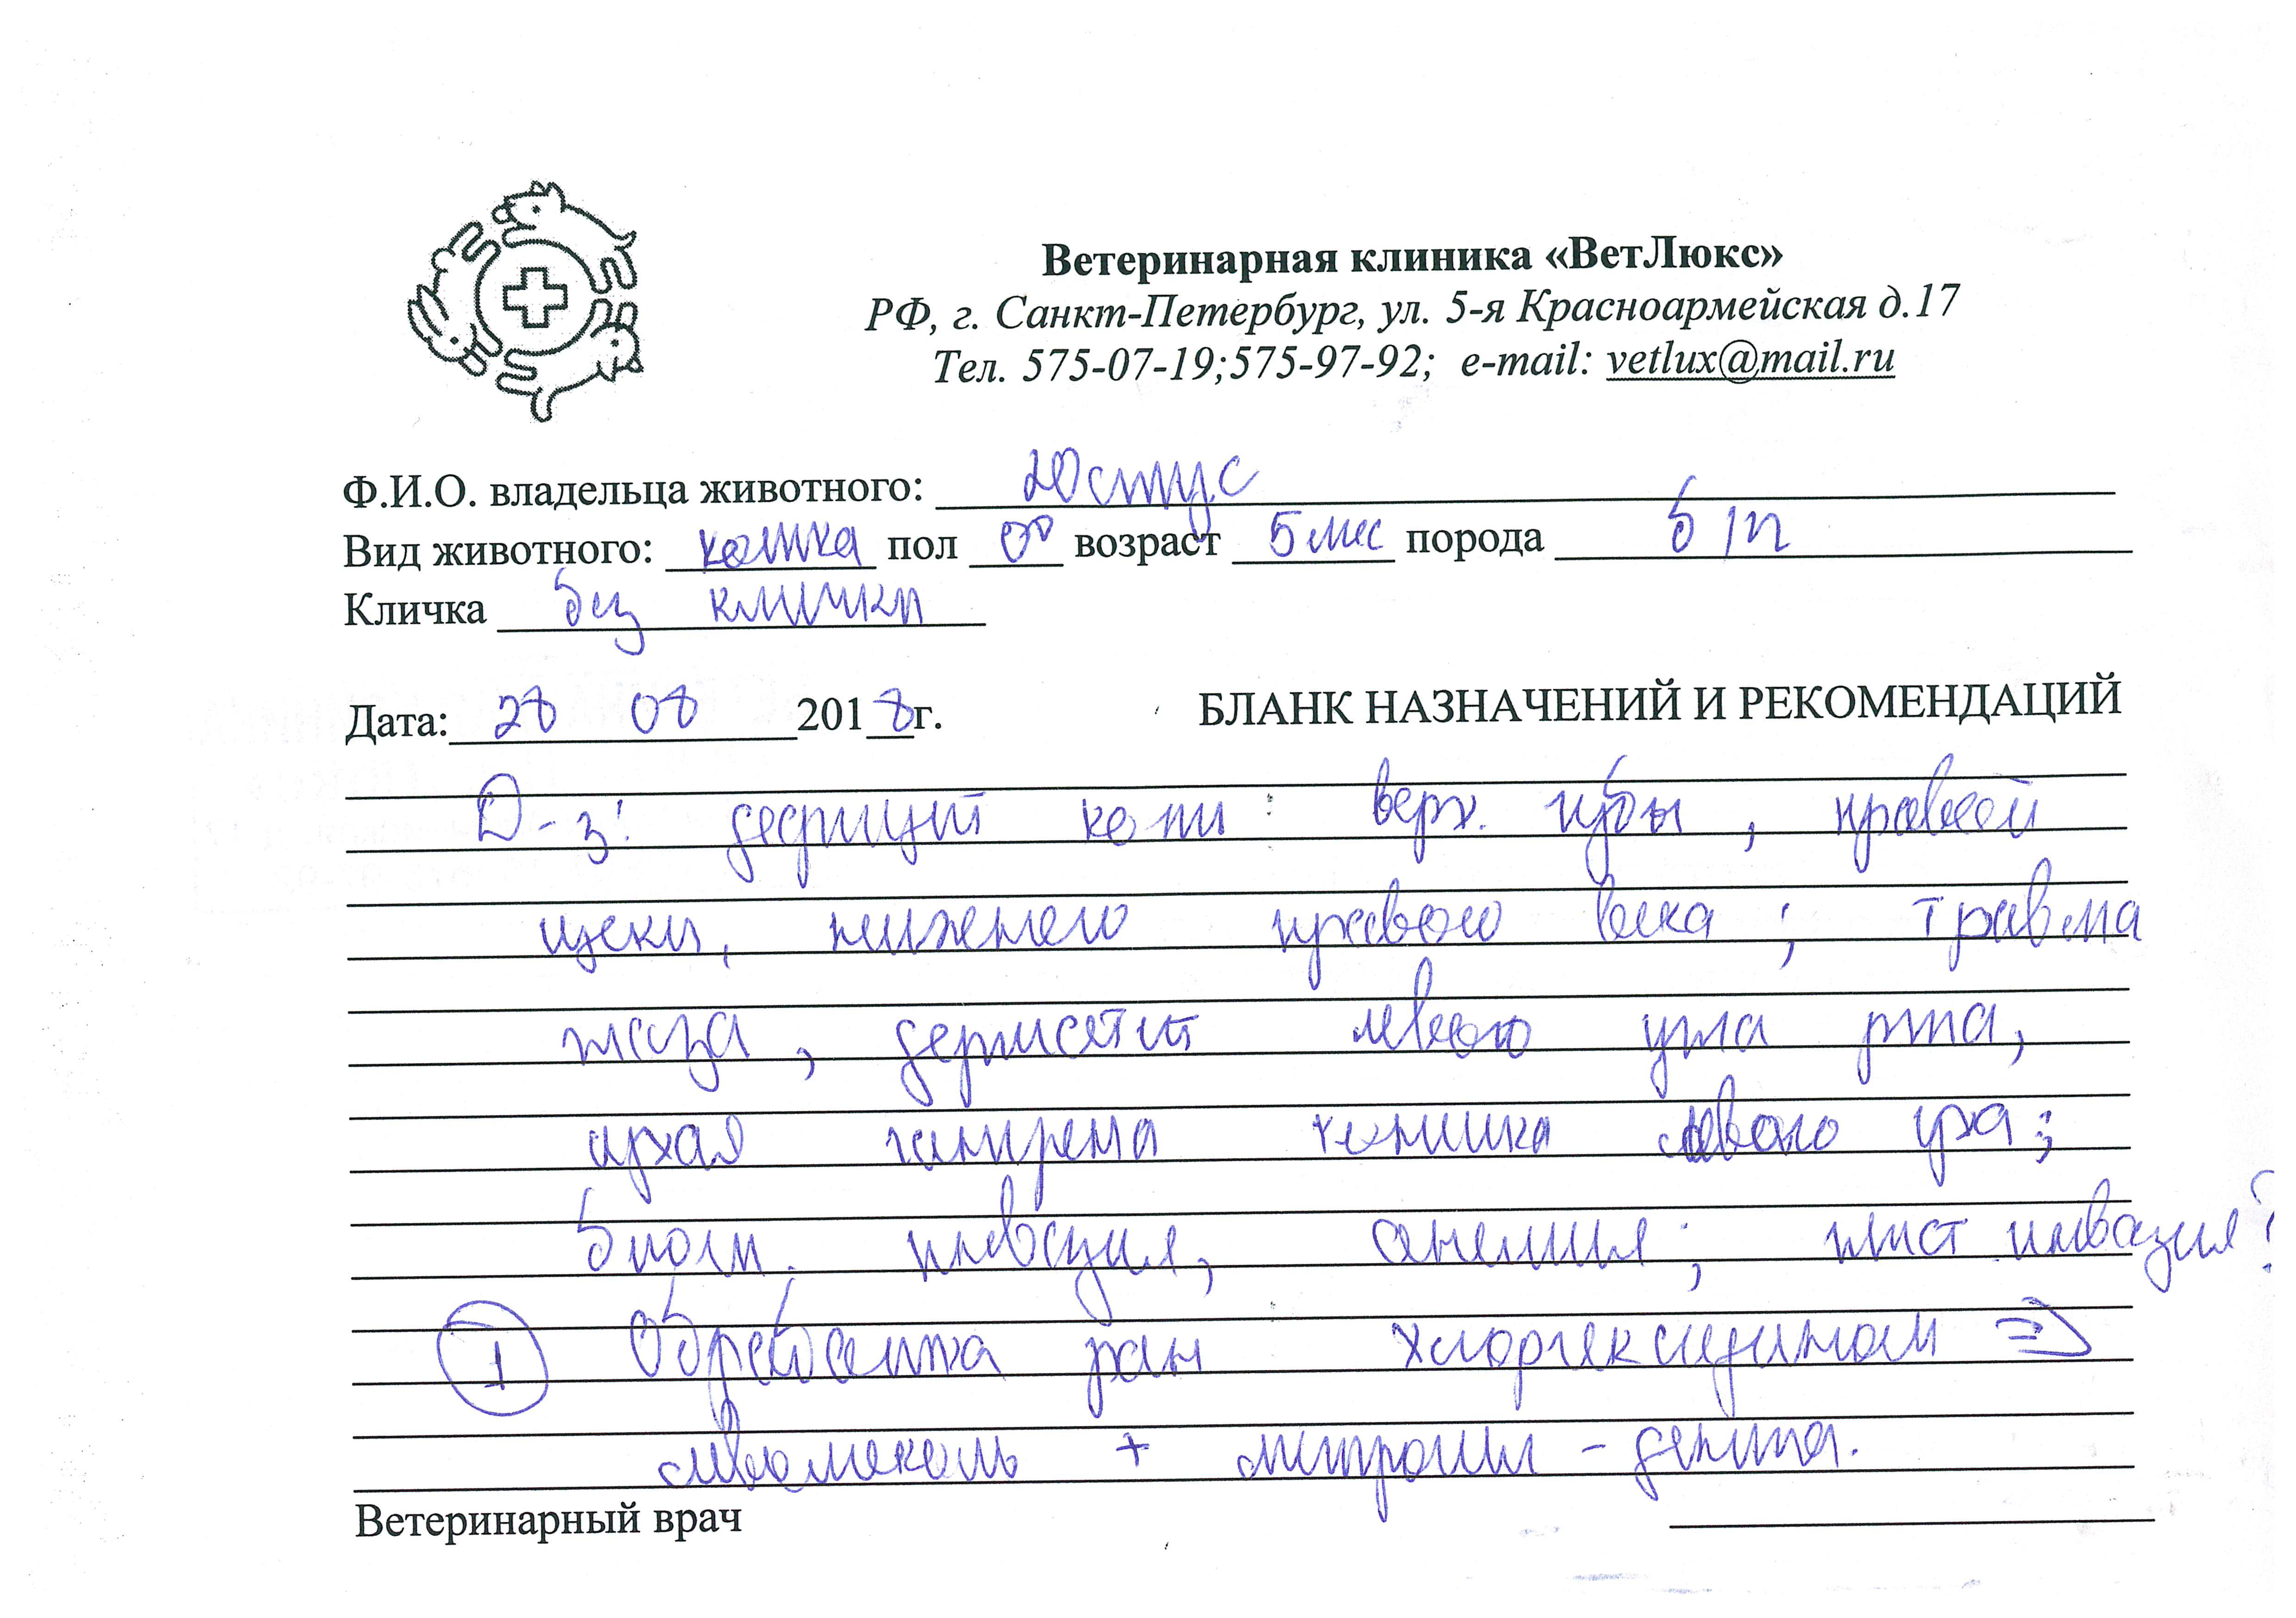 Ветеринарная клиника «ВетЛюкс»
РФ, г. Санкт-Петербург, ул. 5-я Красноармейская д.17
Тел. 575-07-19;575-97-92; e-mail: vetlux@mail.ru
Ф.И.О. владельца животного: Юстус
Вид животного: кошка пол возраст 5 мес порода б/п
Кличка без клички
Дата: 28 08 2018г. БЛАНК НАЗНАЧЕНИЙ И РЕКОМЕНДАЦИЙ
D-з: дефицит кожи: верх. губы, правой
щеки, нижнего правого века; травма
глаза, дерматит левого угла рта,
сухая гангрена кончика левого уха;
блош. инвазия, анемия; глист инвазия?
1 Обработка ран хлоргексидином ⇒
левомеколь + метрогил-дента.
Ветеринарный врач